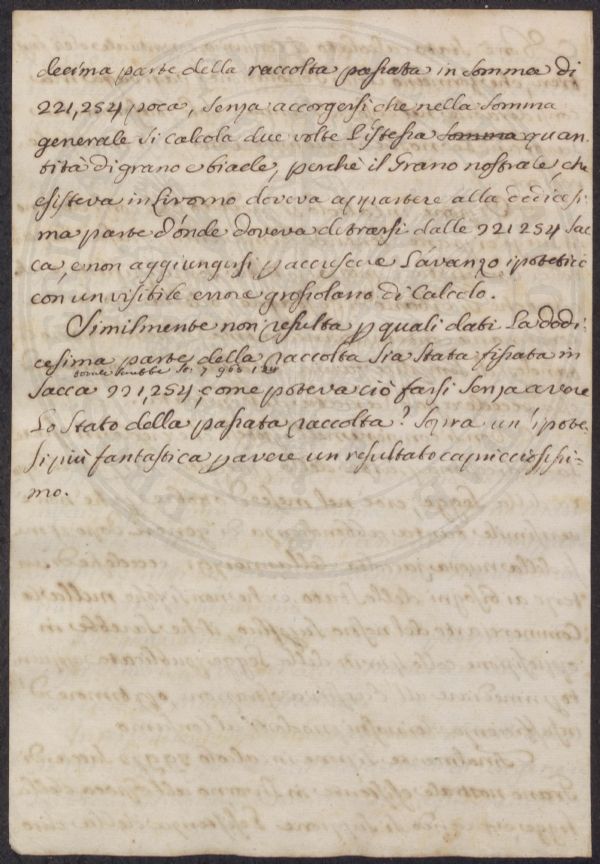 decima parte della raccolta passata in somma di
221,254 poca, senza accorgersi che nella somma
generale si calcola due volte l'istessa somma quan
tità di grano e biade, perchè il Grano nostrale, che
esisteva in Livorno doveva appartere alla dodicesi
ma parte d'onde doveva detrarsi dalle 221254 sac
ca, e non aggiungersi p accrescere l'avanzo ipotetico
con un visibile errore grossolano di Calcolo.
Similmente non resulta p quali dati la dodi
cesima parte della raccolta sia stata fissata in
sacca 221,254, come poteva ciò farsi senza avere
lo Stato della passata raccolta? Sopra un' ipote
si più fantastica p avere un resultato capricciosissi-
mo.